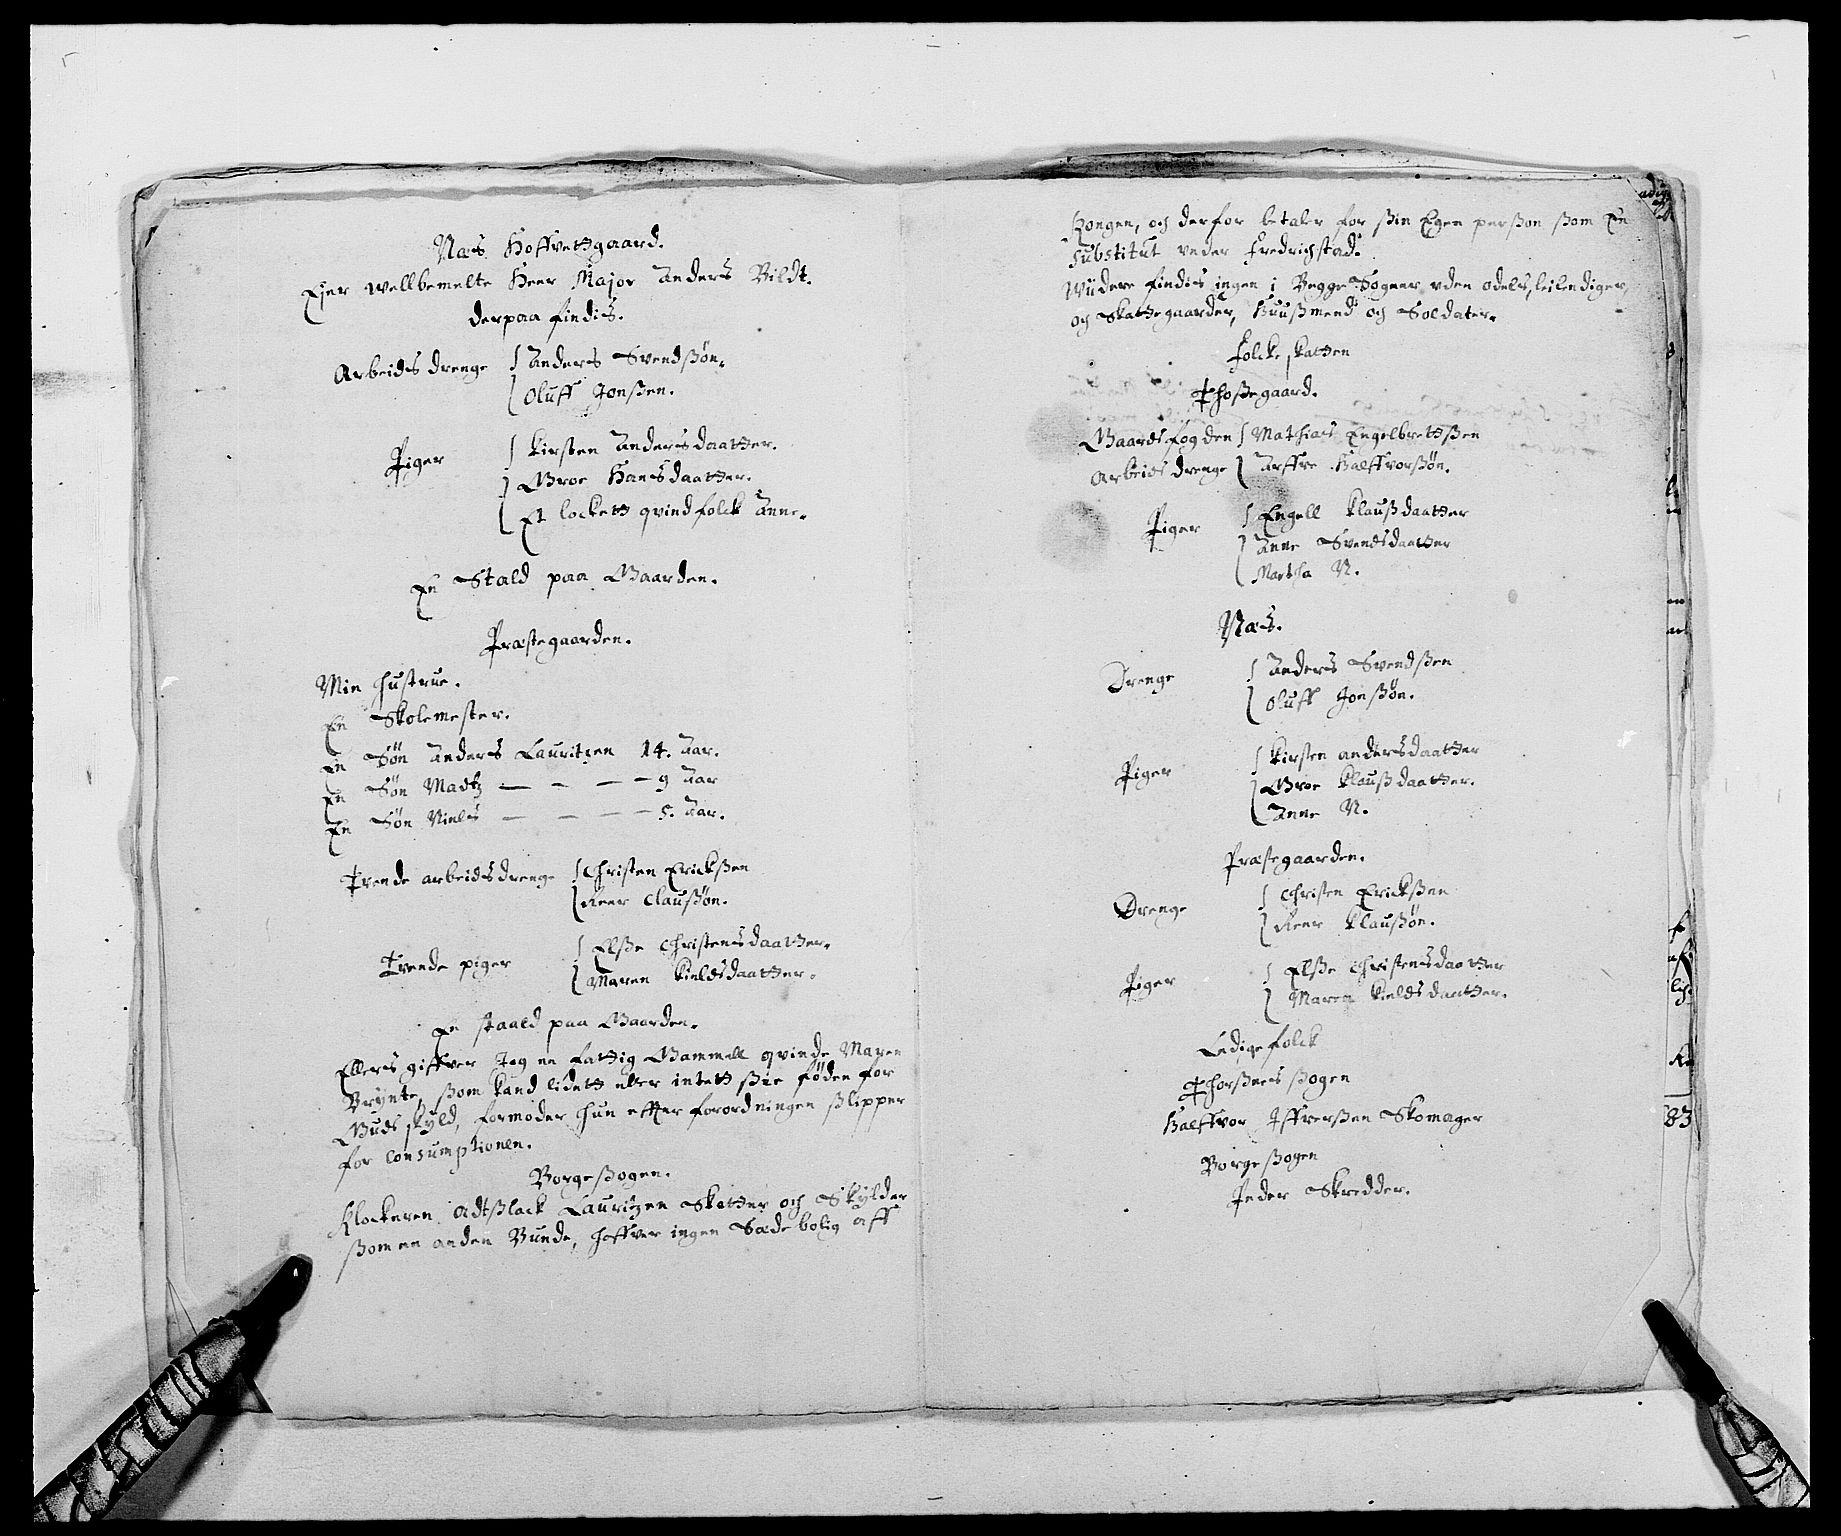 Næs Hoffvettgaard.
Ejer wellbemelte Heer Major Anders Bildt.
derpaa findis.
Arbeids drenge { Anders Svendßøn.
Oluff Jonßen.
Piger { Kirsten Andersdaatter.
Groe Hansdaatter.
Et lockett qvindfolck Anne.
En Stald paa Gaarden.
Præstegaarden.
Min hustrue.
En Skolemester.
En Søn Anders Lauritzen 14. Aar.
En Søn Madtz — — — — 9 Aar
En Søn Niels — — — — 5. Aar.
Tvende arbeidsdrenge { Christen Erickßen
Reer Claußøn.
Tvende piger { Elße Christensdaatter.
Maren Kieldsdaatter.
En staald paa Gaarden.
Ellers giffver Jeg en fattig Gammell qvinde Maren
Brynte, ßom kand lidett eller intett ßee føden for
Guds skyld, formoder hun effter forordningen ßlipper
for Consumptionen.
Borge ßogen.
Klockeren Adtßlack Lauritzen Skatter och Skylder
ßom en anden Bunde, hoffver ingen Sædebolig aff
Kongen, och derfor betaler for ßin Egen perßon ßom En
Substitut under Fredrichstad.
Widere findis ingen i Begge Sogner uden odels, leilendiger,
och Skattegaarder, Huußmend och Soldater.
Folckeskatten
Thoßegaard.
Gaardsfogden { Mathias Engelbrettßen
Arbeids drenge { Arffve Halffvorßøn.
Piger { Engell Klaußdaatter
Anne Svendsdaatter
Martha N.
Næs.
Drenge { Anders Svendßen
Oluff Jonßøn.
Piger { Kirsten andersdaatter
Groe Klaußdaatter.
Anne N.
Præstegaarden.
Drenge { Christen Erickßen
Reer Klaußøn.
Piger { Elße Christensdaatter
Maren Kieldsdaatter.
Ledige folck
Thorßnes ßogen
Halffvor Iffverßen Skomager
Borge ßogen
Peder Skredder.